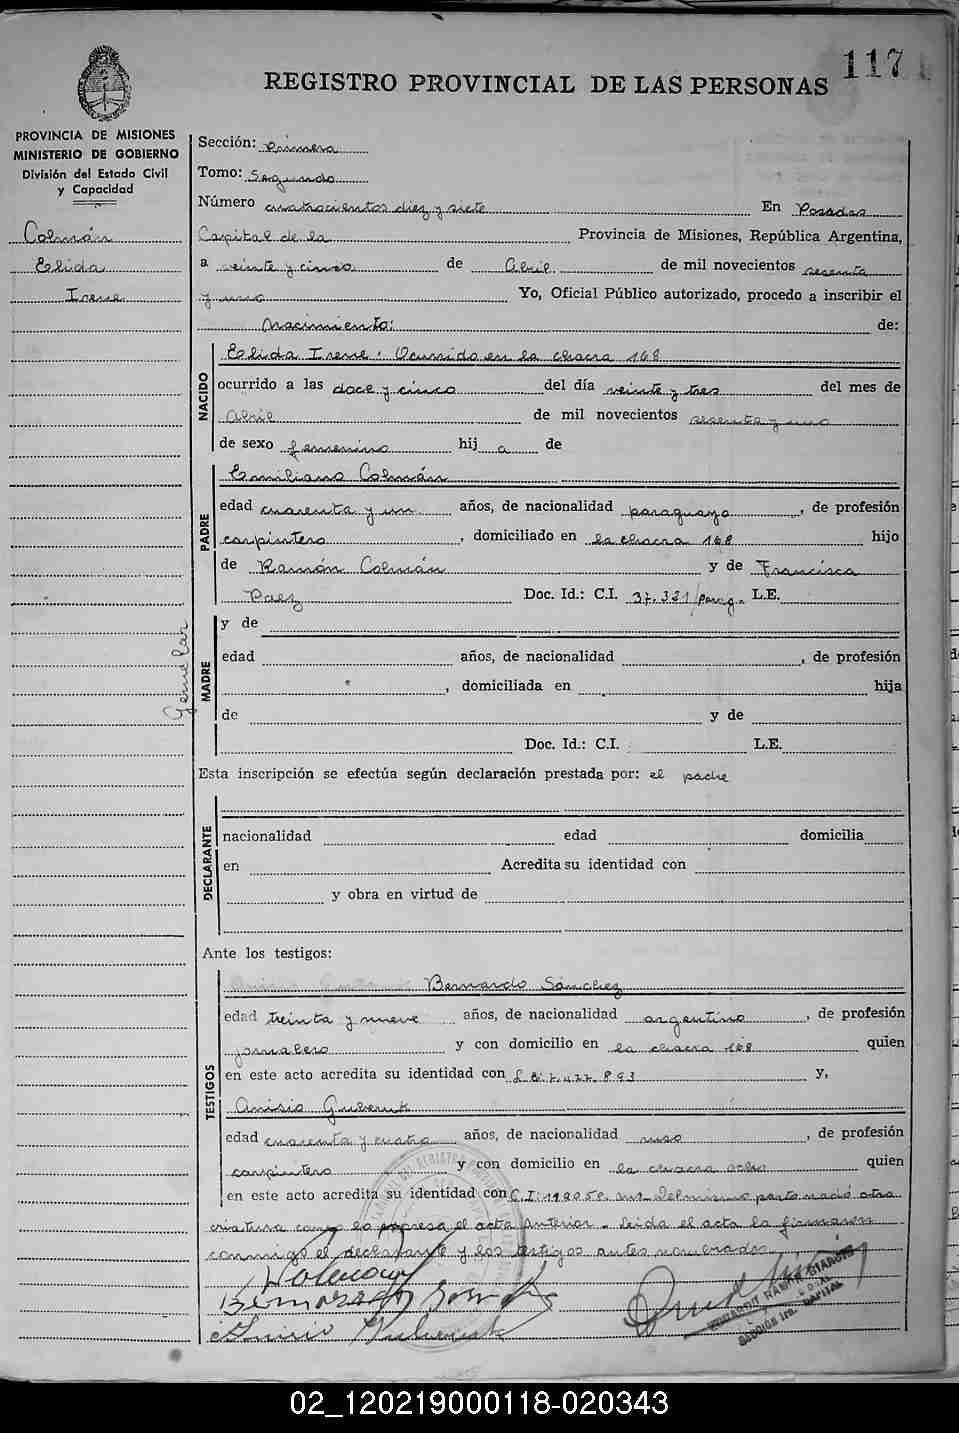 117
REGISTRO PROVINCIAL DE LAS PERSONAS
PROVINCIA DE MISIONES
MINISTERIO DE GOBIERNO
División del Estado Civil
y Capacidad
Colmán
Elida
Irene
Gemelar
Sección: Primera
Tomo: Segundo
Número cuatrocientos diez y siete En Posadas
Capital de la Provincia de Misiones, República Argentina,
a veinte y cinco de Abril de mil novecientos sesenta
y uno Yo, Oficial Público autorizado, procedo a inscribir el
Nacimiento: de:
NACIDO
Elida Irene. Ocurrido en la chacra 168
ocurrido a las doce y cinco del día veinte y tres del mes de
Abril de mil novecientos sesenta y uno
de sexo femenino hij a de
PADRE
Emiliano Colmán
edad cuarenta y un años, de nacionalidad paraguayo, de profesión
carpintero, domiciliado en la chacra 168 hijo
de Ramón Colmán y de Francisca
Paez Doc. Id.: C.I. 37.321/parag. L.E.
MADRE
y de
edad años, de nacionalidad , de profesión
, domiciliada en hija
de y de
Doc. Id.: C.I. L.E.
Esta inscripción se efectúa según declaración prestada por: el padre
DECLARANTE
nacionalidad edad domicilia
en Acredita su identidad con
y obra en virtud de
Ante los testigos:
TESTIGOS
Bernardo Sánchez
edad treinta y nueve años, de nacionalidad argentino, de profesión
jornalero y con domicilio en la chacra 168 quien
en este acto acredita su identidad con y,
Anisio
edad cuarenta y cuatro años, de nacionalidad ruso, de profesión
carpintero y con domicilio en la chacra ocho quien
en este acto acredita su identidad con C.I. Del mismo parto nació otra
criatura como lo expresa el acta anterior. leída el acta la firmaron
conmigo el declarante y los testigos antes nombrados.
SECCIÓN 1ra. CAPITAL
02_120219000118-020343